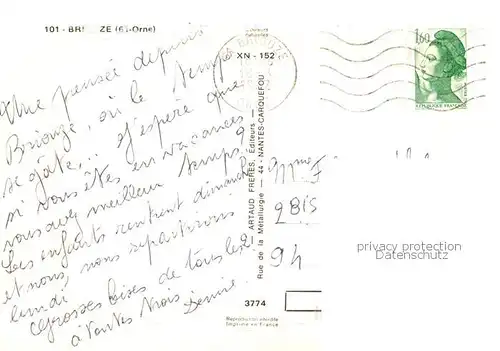 101 - BRIOUZE (61-Orne)
Couleurs Naturelles
XN - 152
1,60
REPUBLIQUE FRANÇAISE
Une pensée depuis
Briouze, où le temps
se gâte... J'espère que
si vous êtes en vacances
vous avez meilleur temps.
Les enfants rentrent dimanche
et nous, nous repartirons
lundi.
Grosses bises de tous les 2
à toutes trois Denise
ARTAUD FRERES, Editeurs
Rue de la Métallurgie - 44 - NANTES-CARQUEFOU
Mme F
94
privacy protection
Datenschutz
3774
Reproduction interdite
Imprimé en France